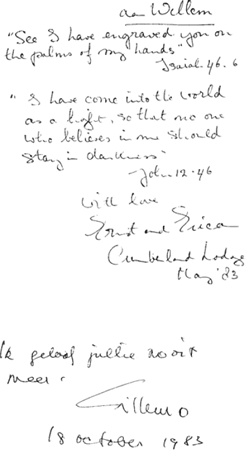 aan Willem
"See I have engraved you on
the palms of my hands"
Isaiah 46.6
"I have come into the world
as a light, so that no one
who believes in me should
stay in darkness"
-John 12.46
with love
Ernst and Erica
Cumberland Lodge
May '83
Ik geloof jullie nooit
meer.
Willem O
18 october 1983